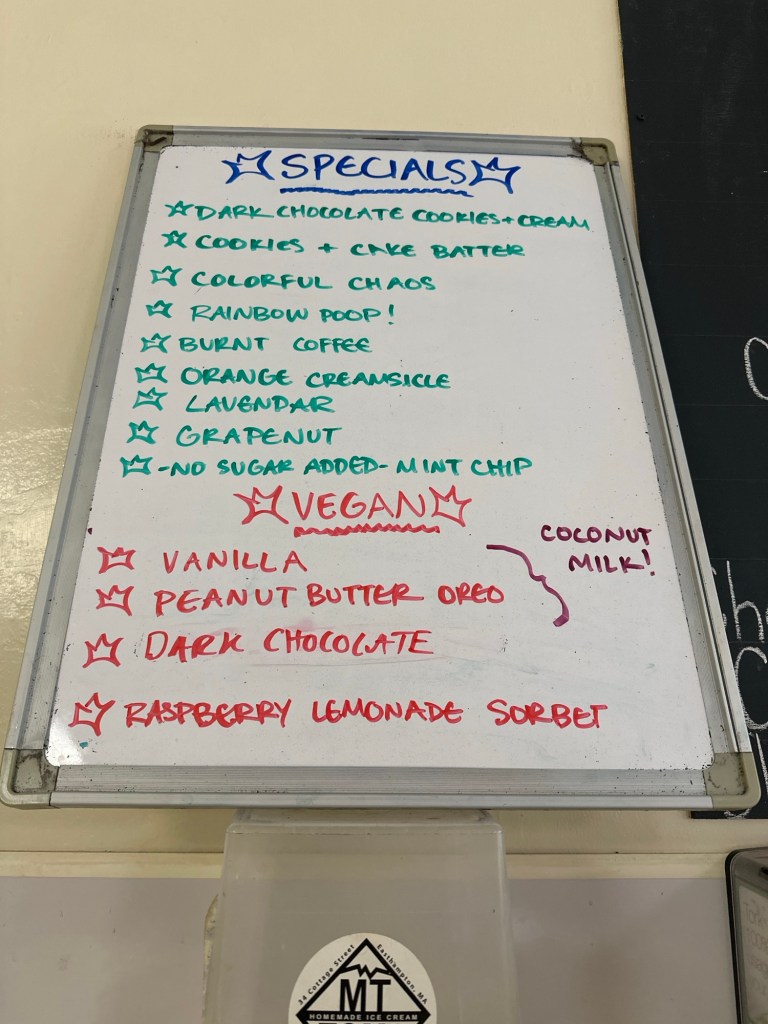 SPECIALS
DARK CHOCOLATE COOKIES + CREAM
COOKIES + CAKE BATTER
COLORFUL CHAOS
RAINBOW POOP!
BURNT COFFEE
ORANGE CREAMSICLE
LAVENDAR
GRAPENUT
-NO SUGAR ADDED- MINT CHIP
VEGAN
VANILLA
PEANUT BUTTER OREO
DARK CHOCOLATE
COCONUT
MILK!
RASPBERRY LEMONADE SORBET
34 Cottage Street
Easthampton, MA
MT
HOMEMADE ICE CREAM